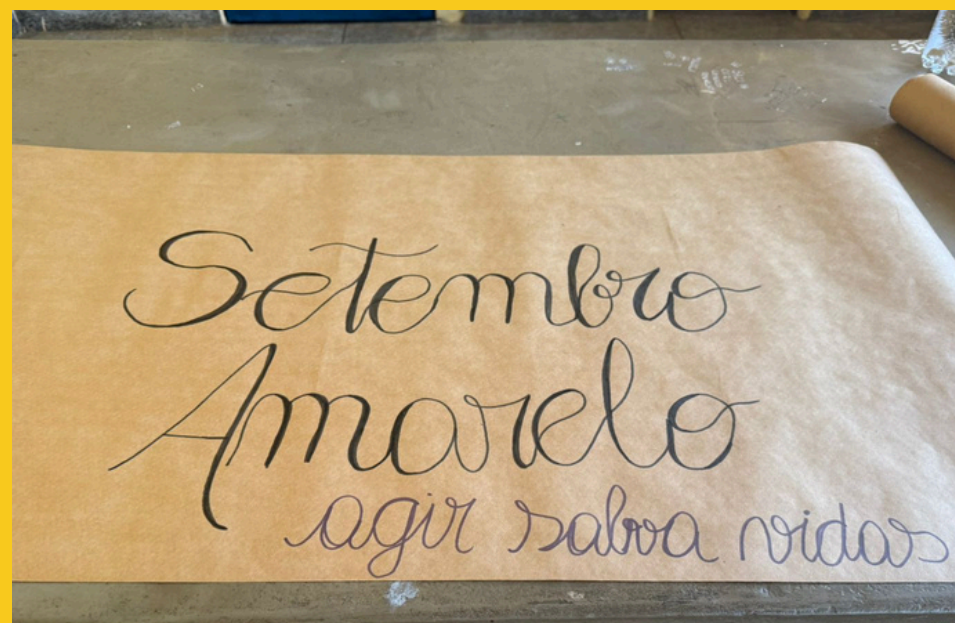 Setembro
Amarelo
agir salva vidas